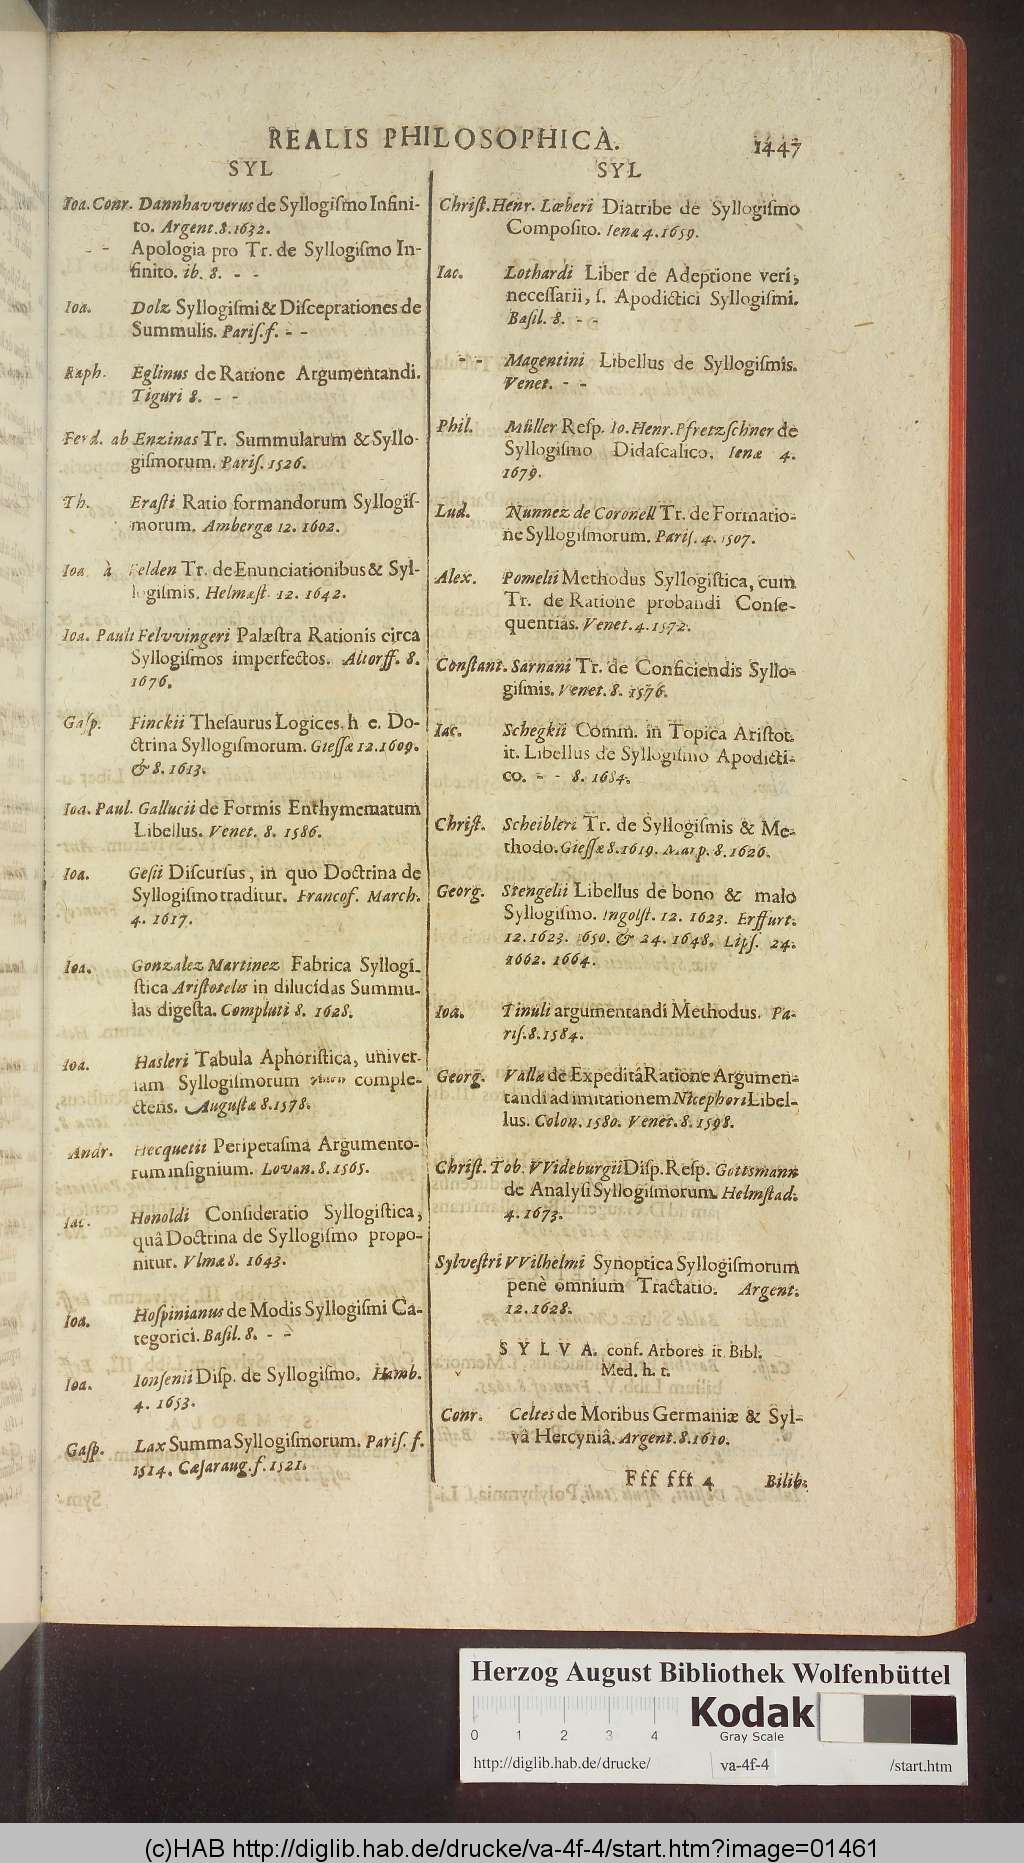 REALIS PHILOSOPHICA. 1447
SYL
Ioa. Conr. Dannhavverus de Syllogiſmo Infini-
to. Argent. 8. 1632.
- - Apologia pro Tr. de Syllogiſmo In-
finito. ib. 8. - -
Ioa. Dolz Syllogiſmi & Diſceptationes de
Summulis. Pariſ. f. - -
Raph. Eglinus de Ratione Argumentandi.
Tiguri 8. - -
Ferd. ab Enzinas Tr. Summularum & Syllo-
giſmorum. Pariſ. 1526.
Th. Eraſti Ratio formandorum Syllogiſ-
morum. Ambergæ 12. 1602.
Ioa à Felden Tr. de Enunciationibus & Syl-
logiſmis. Helmæſt. 12. 1642.
Ioa. Pauli Felvvingeri Palæſtra Rationis circa
Syllogiſmos imperfectos. Altorff. 8.
1676.
Gaſp. Finckii Theſaurus Logices. h e. Do-
ctrina Syllogiſmorum. Gieſſæ 12. 1609.
& 8. 1613.
Ioa. Paul. Gallucii de Formis Enthymematum
Libellus. Venet. 8. 1586.
Ioa. Geſii Diſcurſus, in quo Doctrina de
Syllogiſmo traditur. Francof. March.
4. 1617.
Ioa. Gonzalez Martinez Fabrica Syllogi-
ſtica Ariſtotelis in dilucidas Summu-
las digeſta. Compluti 8. 1628.
Ioa. Hasleri Tabula Aphoriſtica, univer-
ſam Syllogiſmorum comple-
ctens. Auguſtæ 8. 1578.
Andr. Hecquetii Peripetaſina Argumento-
rum inſignium. Lovan. 8. 1565.
Iac. Honoldi Conſideratio Syllogiſtica,
quâ Doctrina de Syllogiſmo propo-
nitur. Vlmæ 8. 1643.
Ioa. Hoſpinianus de Modis Syllogiſmi Ca-
tegorici. Baſil. 8. - -
Ioa. Ionſenii Diſp. de Syllogiſmo. Hamb.
4. 1653.
Gaſp. Lax Summa Syllogiſmorum. Pariſ. f.
1514. Cæſaraug. f. 1521.
SYL
Chriſt. Henr. Lœberi Diatribe de Syllogiſmo
Compoſito. Ienæ 4. 1659.
Iac. Lothardi Liber de Adeptione veri,
neceſſarii, ſ. Apodictici Syllogiſmi.
Baſil. 8. - -
- - Magentini Libellus de Syllogiſmis.
Venet. - -
Phil. Müller Reſp. Io. Henr. Pfretzſchner de
Syllogiſmo Didaſcalico. Ienæ 4.
1679.
Lud. Nunnez de Coronell Tr. de Formatio-
ne Syllogiſmorum. Pariſ. 4. 1507.
Alex. Pomelii Methodus Syllogiſtica, cum
Tr. de Ratione probandi Conſe-
quentias. Venet. 4. 1572.
Conſtant. Sarnani Tr. de Conficiendis Syllo-
giſmis. Venet. 8. 1576.
Iac. Schegkii Comm. in Topica Ariſtot.
it. Libellus de Syllogiſmo Apodicti-
co. - - 8. 1684.
Chriſt. Scheibleri Tr. de Syllogiſmis & Me-
thodo. Gieſſæ 8. 1619. Marp. 8. 1626.
Georg. Stengelii Libellus de bono & malo
Syllogiſmo. Ingolſt. 12. 1623. Erffurt.
12. 1623. 1650. & 24. 1648. Lipſ. 24.
1662. 1664.
Ioa. Tinuli argumentandi Methodus. Pa-
riſ. 8. 1584.
Georg. Vallæ de Expeditâ Ratione Argumen-
tandi ad imitationem Nicephori Libel-
lus. Colon. 1580. Venet. 8. 1598.
Chriſt. Tob. VVideburgii Diſp. Reſp. Gottsmann
de Analyſi Syllogiſmorum. Helmſtad.
4. 1673.
Sylveſtri VVilhelmi Synoptica Syllogiſmorum
penè omnium Tractatio. Argent.
12. 1628.
SYLVA. conf. Arbores it. Bibl.
Med. h. t.
Conr. Celtes de Moribus Germaniæ & Syl-
vâ Hercyniâ. Argent. 8. 1610.
Fff fff 4 Bilib.
Herzog August Bibliothek Wolfenbüttel
0 1 2 3 4
Kodak
Gray Scale
http://diglib.hab.de/drucke/ va-4f-4 /start.htm
(c)HAB http://diglib.hab.de/drucke/va-4f-4/start.htm?image=01461